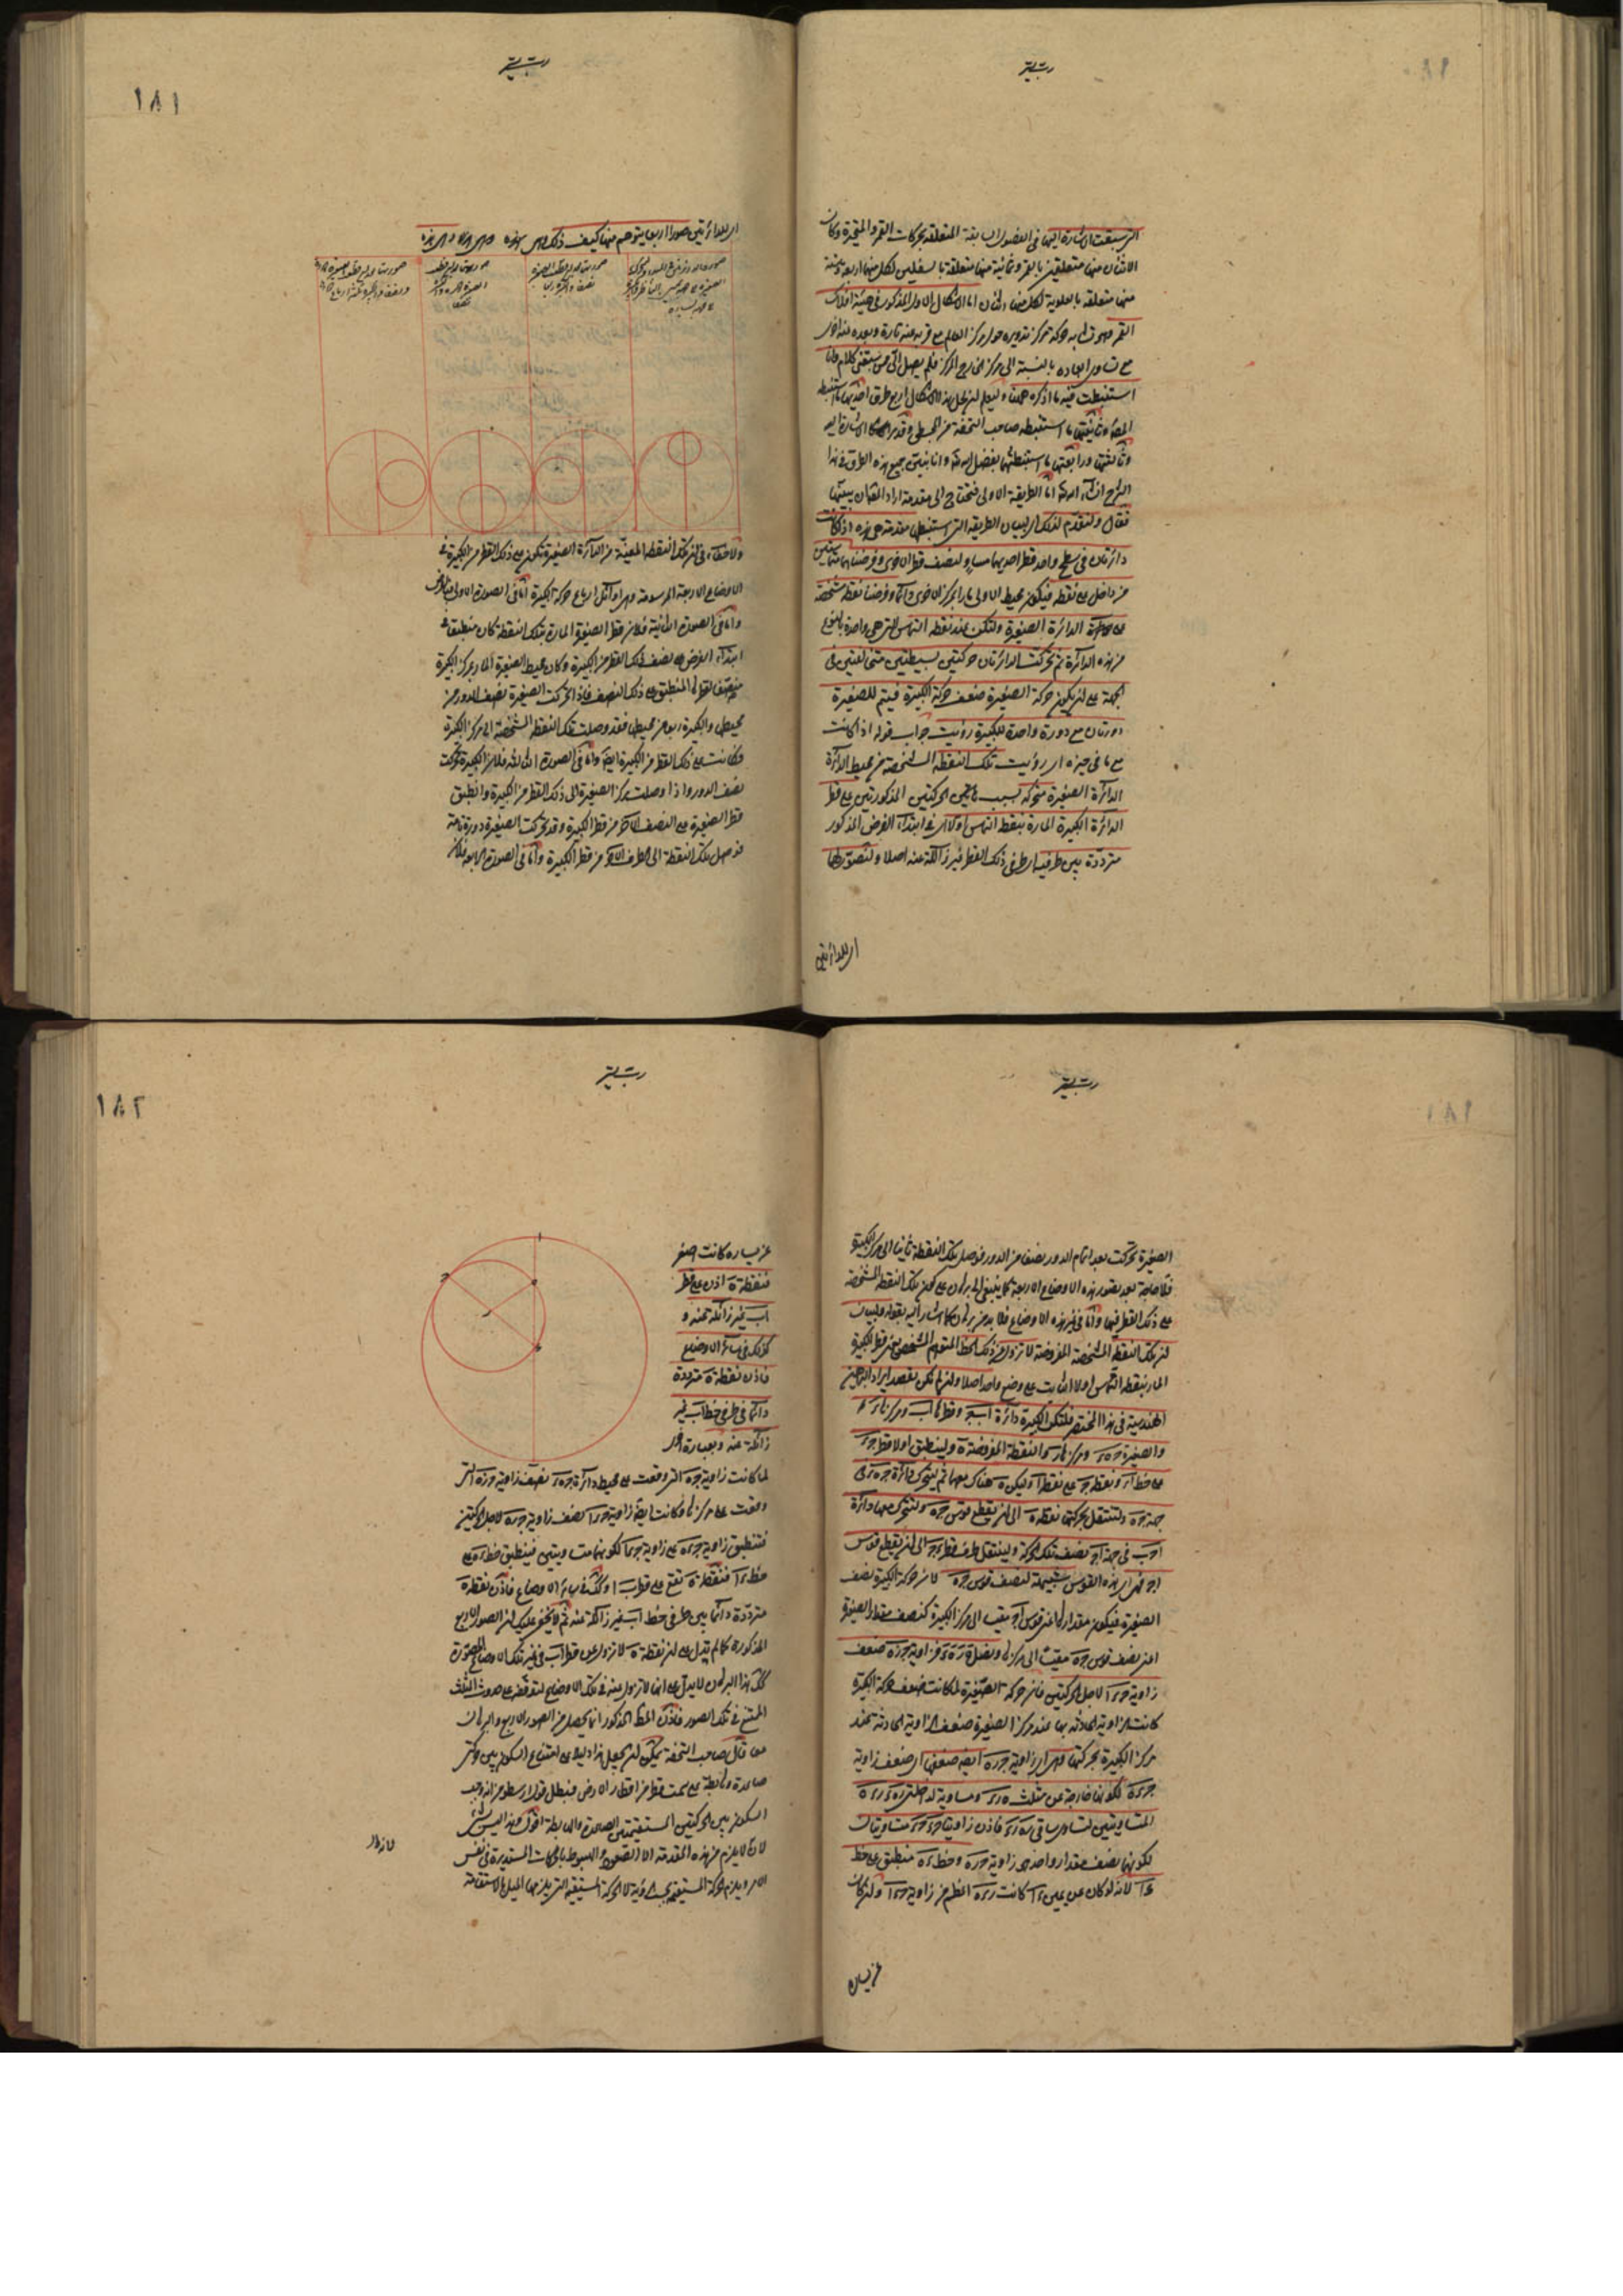 ١٨١
التي سبقت الاشارة اليها في الفصول السابقة المتعلقة بحركات القمر والمتحيرة وكان
الاثنان منها متعلقين بالقمر وثمانية منها متعلقة بالسفليين لكل منهما اربعة وستة
منها متعلقة بالعلوية لكل منها اثنان اما الاشكال الاول المذكور في هيئة افلاك
القمر وهو تشابه حركة مركز تدويره حول مركز العالم مع قربه منه تارة وبعده عنه اخرى
مع تساوي ابعاده بالنسبة الى مركز الخارج المركز فلم يصل الي ممن سبقني كلام وانا
استنبطت فيه ما اذكره ههنا وليعلم ان لحل هذا الاشكال اربع طرق احديها ما استنبطه
المصنف وثانيتها ما استنبطه صاحب التحفة من المجسطي وقد مر الاشارة اليه
وثالثتها ورابعتها ما استنبطتها بفضل الله وانا نبين جميع هذه الطرق في هذا
الشرح ان شاء الله اما الطريقة الاولى فتحتاج الى مقدمة اراد المصنف ان يبينها
فقال ولنقدم لذلك اي لبيان الطريقة التي استنبطها مقدمة هي هذه اذا كانت
دائرتان في سطح واحد قطر احديهما مساو لنصف قطر الاخرى وفرضناهما متماستين
من داخل على نقطة فيكون محيط الاولى مارا بمركز الاخرى دائما وفرضنا نقطة مشخصة
على الدائرة الصغيرة ولتكن عند نقطة التماس التي هي واحدة بالنوع
من هذه الدائرة ثم تحركت الدائرتان حركتين بسيطتين متخالفتين في
الجهة على ان يكون حركة الصغيرة ضعف حركة الكبيرة فيتم للصغيرة
دورتان مع دورة واحدة للكبيرة رؤيت جواب قوله اذا كانت
مع ما في حيزه اي رؤيت تلك النقطة المشخصة من محيط الدائرة
الدائرة الصغيرة متحركة بسبب الحركتين المذكورتين على قطر
الدائرة الكبيرة المارة بنقطة التماس اولا اي في ابتداء الفرض المذكور
مترددة بين طرفيه اي طرفي ذلك القطر غير زائلة عنه اصلا ولنصور لها
اي للدائرتين
اي للدائرتين صورا اربعا يتوهم منها كيف ذلك وهي هذه
ولا خفاء في ان تلك النقطة المعينة من الدائرة الصغيرة تكون على ذلك القطر من الكبيرة في
الاوضاع الاربعة المرسومة وهي اوائل ارباع حركة الكبيرة اما في الصورة الاولى
واما في الصورة الثانية فلان قطر الصغيرة المارة بتلك النقطة كان منطبقا في
ابتداء الفرض على نصف ذلك القطر من الكبيرة وكان محيط الصغيرة المار بمركز الكبيرة
المنطبق على ذلك النصف فاذا تحركت الصغيرة نصف الدور من
محيطها والكبيرة ربعا من محيطها فقد وصلت تلك النقطة المشخصة الى مركز الكبيرة
وكانت على ذلك القطر من الكبيرة ايضا واما في الصورة الثالثة فلان الكبيرة تحركت
نصف الدور واذا وصلت مركز الصغيرة الى ذلك القطر من الكبيرة وانطبق
قطر الصغيرة على النصف الآخر من قطر الكبيرة وقد تحركت الصغيرة دورة تامة
فوصل تلك النقطة الى الطرف الآخر من قطر الكبيرة واما في الصورة الرابعة فلان
١٨٢
الصغيرة تحركت بعد اتمام الدور نصفا من الدور فوصل تلك النقطة ثانيا الى مركز الكبيرة
فلا حاجة بعد تصور هذه الاوضاع الاربعة كما ينبغي الى برهان على كون تلك النقطة المشخصة
على ذلك القطر فيها واما في غير هذه الاوضاع فلا بد من برهان كما اشار اليه بقوله ولبيان
ان تلك النقطة المشخصة المفروضة لا تزول عن ذلك الخط المتوهم المشخص يعني قطر الكبيرة
المار بنقطة التماس اولا الثابت على وضع واحد اصلا وان لم نكن نقصد ايراد البراهين
الهندسية في هذا المختصر فلتكن الكبيرة دائرة اب وقطرها اب ومركزها ء
والصغيرة جه ومركزها ر والنقطة المفروضة ه ولينطبق اولا قطر جء
على خط اء ونقطة ج على نقطة ا وليكن ه هناك معهما ثم ليتحرك دائرة جه الى
جهة جه ولتنتقل بحركتها نقطة ه الى ان يقطع قوس جه ولتتحرك معها دائرة
اجب في جهة اج نصف تلك الحركة ولينتقل طرف قطر ج الى ان يقطع قوس
اج فهي اي هذه القوس شبيهة لنصف قوس جه لان حركة الكبيرة نصف
الصغيرة فيكون مقدارها اعني قوس اج مقيسا الى مركز الكبيرة كنصف مقدار الصغيرة
اعني نصف قوس جه مقيسا الى مركزها ونصل فزاوية جره ضعف
زاوية جءا لاجل الحركتين فان حركة الصغيرة لما كانت ضعف حركة الكبيرة
كانت الزاوية الحادثة بها عند مركز الصغيرة ضعف الزاوية الحادثة عند
مركز الكبيرة بحركتها وهي اي زاوية جره ايضا ضعفها اي ضعف زاوية
جءه لكونها خارجة عن مثلث هرء ومساوية لداخلتي
المتساويتين لتساوي ساقي فاذن زاويتا متساويتان
لكونهما نصف مقدار واحد هو زاوية جره وخط ءه منطبق على خط
ءا لانه لو كان عن يمين ءا كانت اعظم من زاوية جءا ولو كان
عن يساره
عن يساره كانت اصغر
فنقطة ه اذن على قطر
اب غير زائلة عنه و
كذلك في سائر الاوضاع
فاذن نقطة ه مترددة
دائما في طرفي خط اب غير
زائلة عنه وبعبارة اخرى
لما كانت زاوية جءه التي وقعت على محيط دائرة جهء نصف زاوية جره التي
وقعت على مركزها وكانت ايضا زاوية جءا نصف زاوية جره لاجل الحركتين
فتنطبق زاوية جءه على زاوية جءا لكونهما متساويتين فينطبق خط ءه على
خط ءا فنقطة ه تقع على قطر اب وكذلك في سائر الاوضاع فاذن نقطة ه
مترددة دائما بين طرفي خط اب غير زائلة عنه ثم لا يخفى عليك ان الصور الاربع
المذكورة كما لم تدل على ان نقطة ه لا تزول عن قطر اب في غير تلك الاوضاع المصورة
كذلك هذا البرهان لا يدل على انها لا تزول عنه في تلك الاوضاع لتوقفه على حدوث المثلث
الممتنع في تلك الصور فاذن المط المذكور انما يحصل من الصور الاربع والبرهان
معا قال صاحب التحفة يمكن ان يجعل هذا دليلا على امتناع السكون بين حركتي
صاعدة وهابطة على سمت قطر من اقطار الارض فبطل قول ارسطو من انه وجب
السكون بين الحركتين المستقيمتين الصاعدة والهابطة اقول هذا ليس بشيء
لانه لا يلزم من هذه المقدمة الا الصعود والهبوط بالحركات المستديرة في نفس
الامر ويلزم الحركة المستقيمة بحسب الرؤية لا الحركة المستقيمة التي يلزمها الميل والاستقامة